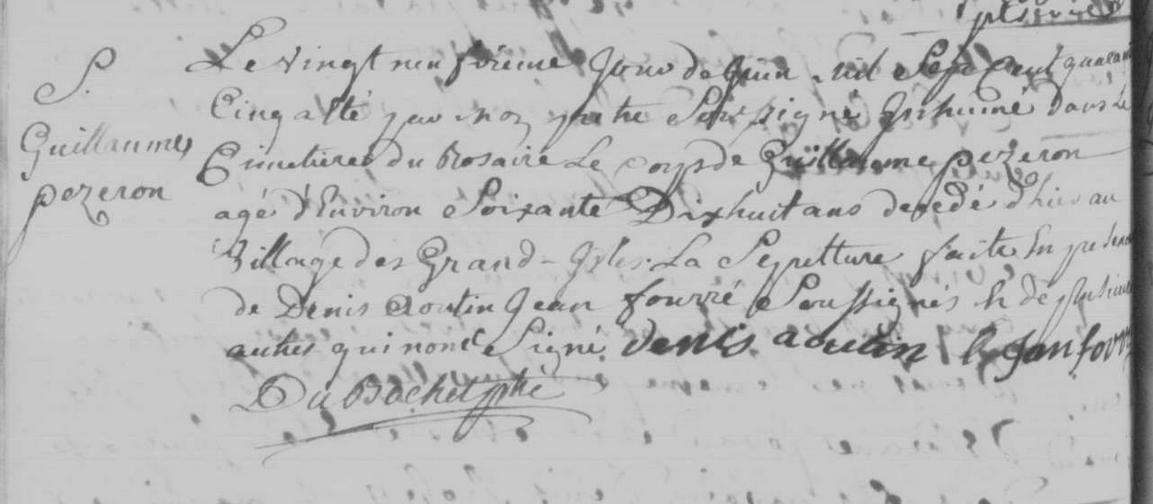 S.
Guillaume
pezeron
Le vingt neuf vieme Jour de Juin mil Sept Cent quarante
Cinq a Eté par moy prtre Soussigné Inhumé dans Le
Cimetiere du Rosaire Le corps de Guillaume pezeron
agé d'Environ Soixante Dixhuit ans decedé d'hier au
Village des Grand-Isles. La Sepulture faite En presence
de Denis aoutin Jean fourré Soussignés & de plusieurs
autres qui n'ont Signé denis aoutin Jan fourré
Du Bochet ptre